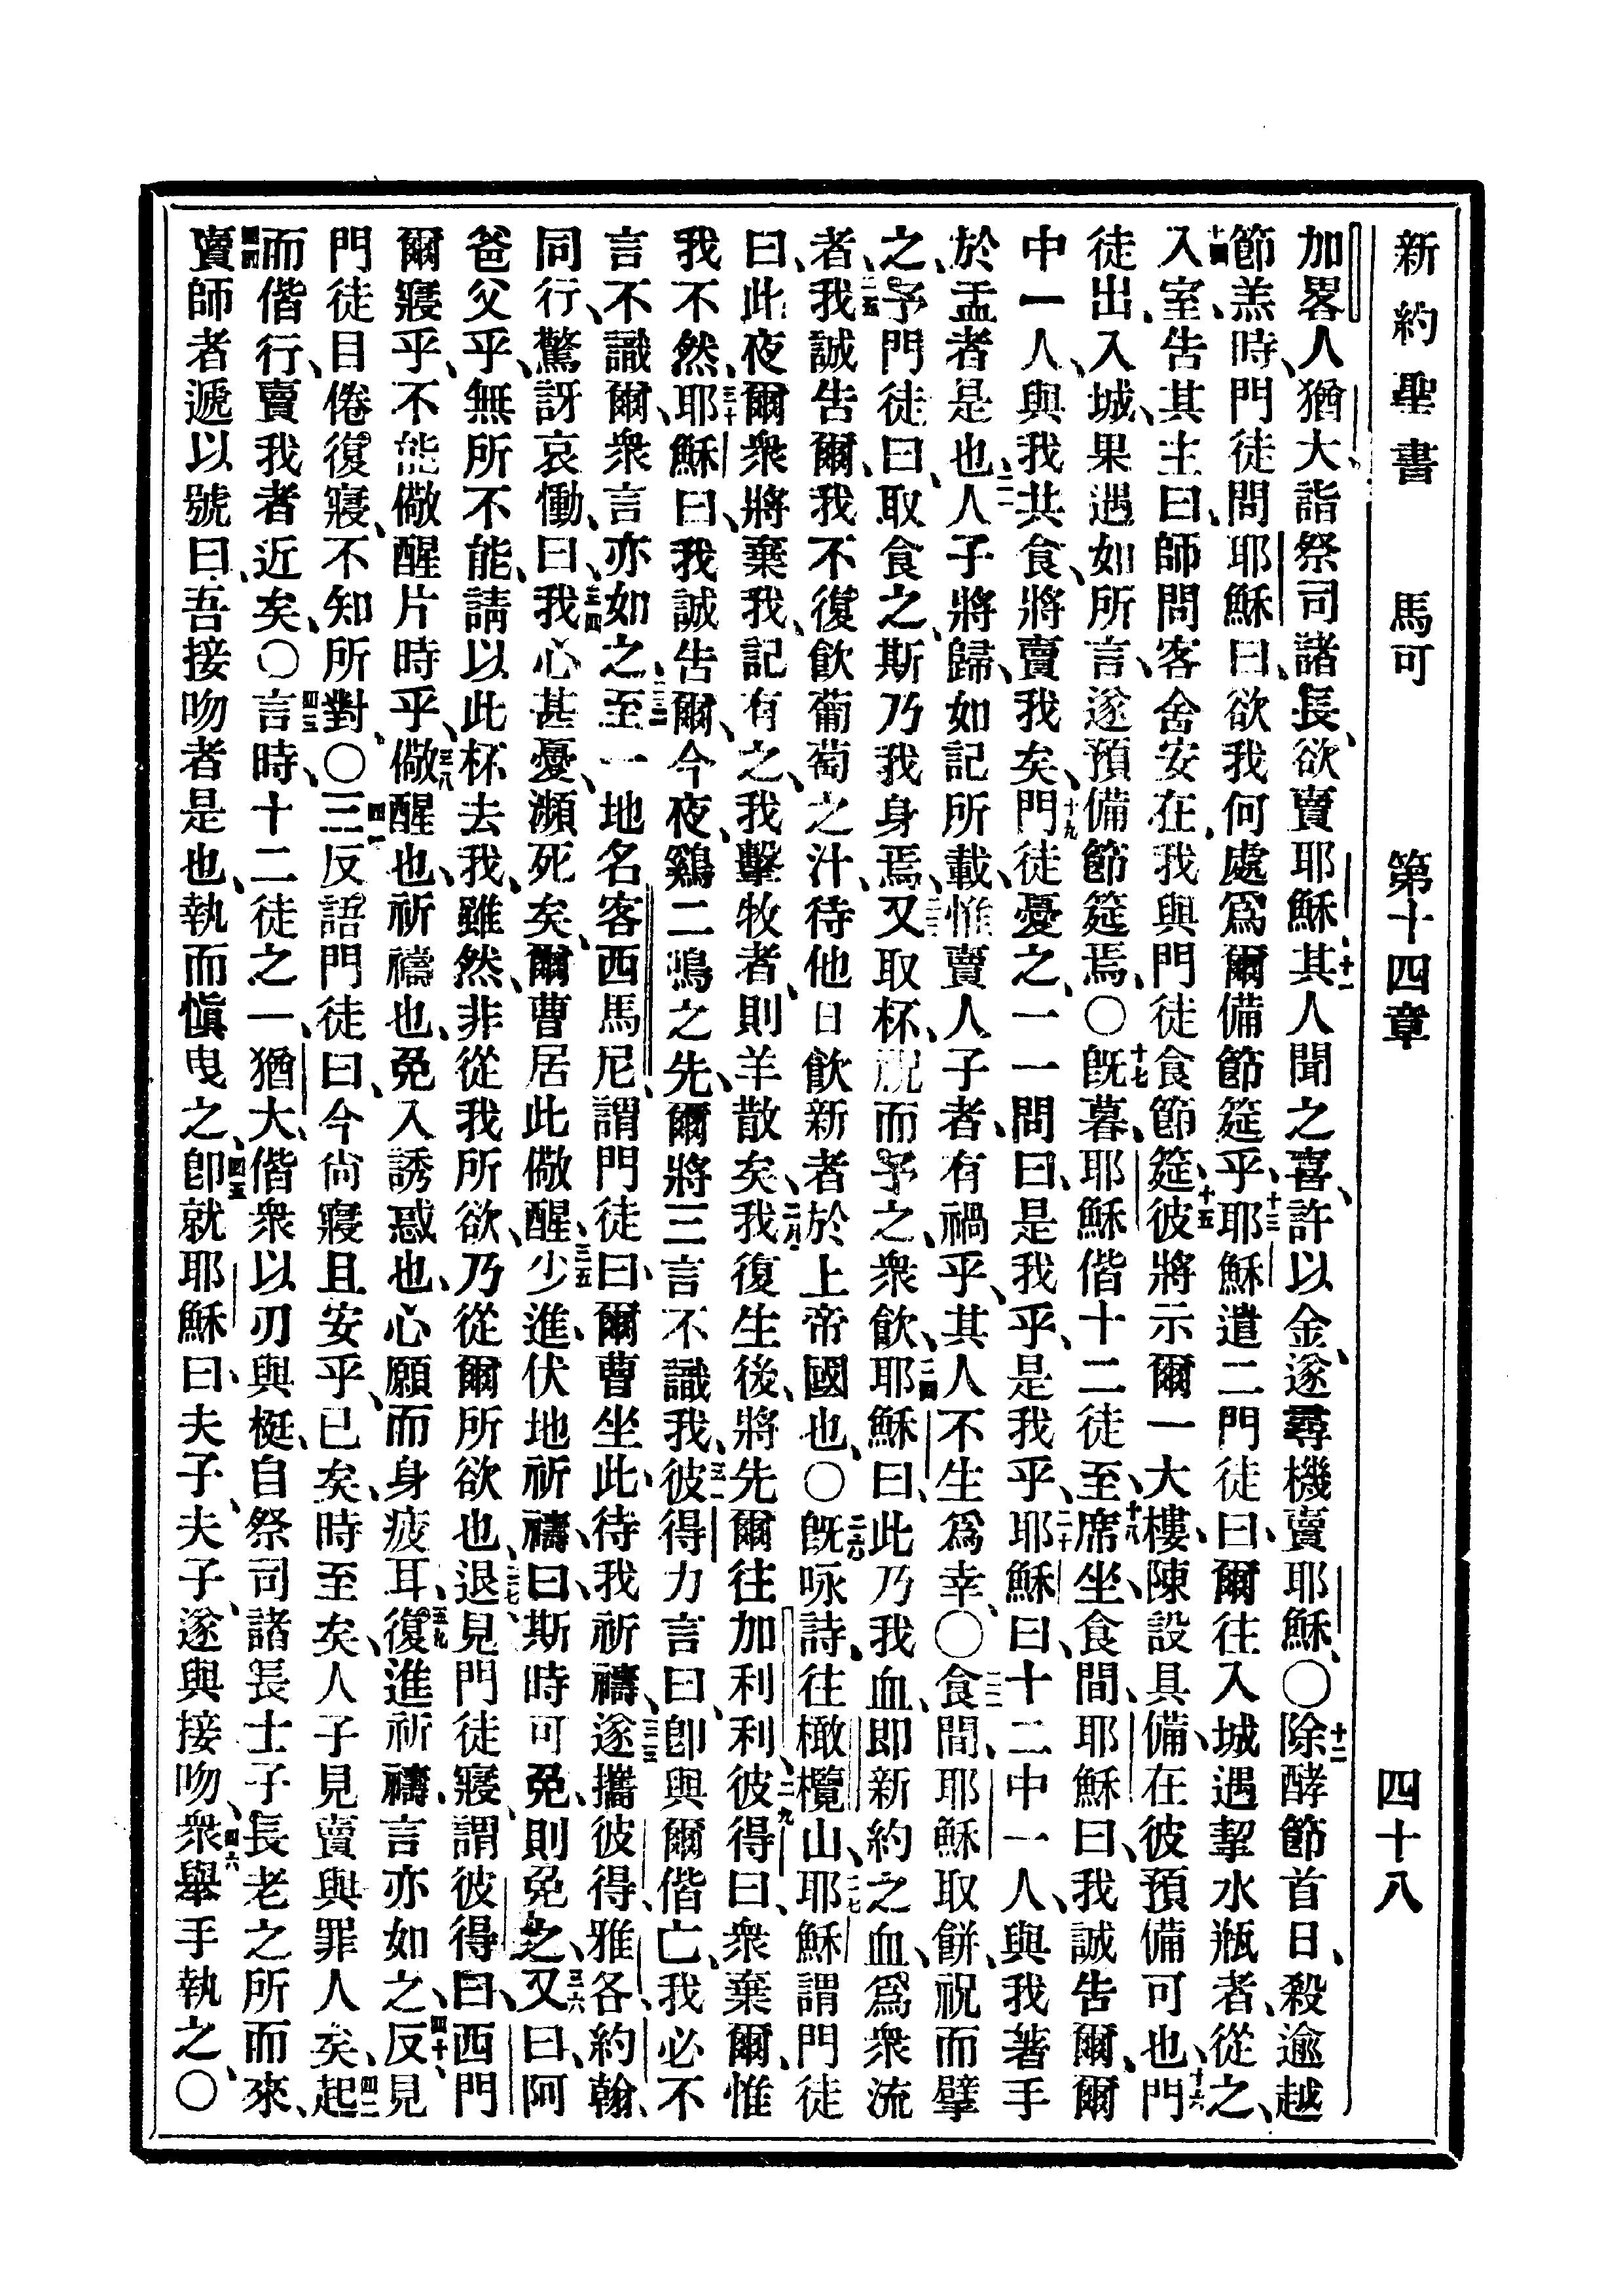 新約聖書 馬可 第十四章 四十八
加畧人、猶大、詣祭司諸長、欲賣耶穌、十一其人聞之喜、許以金、遂尋機賣耶穌、〇十二除酵節首日、殺逾越
節羔時、門徒問耶穌曰、欲我何處爲爾備節筵乎、十三耶穌遣二門徒曰、爾往入城、遇挈水瓶者、從之、
十四入室、告其主曰、師問客舍安在、我與門徒食節筵、十五彼將示爾一大樓、陳設具備、在彼預備可也、十六門
徒出、入城、果遇如所言、遂預備節筵焉、〇十七旣暮、耶穌偕十二徒至、十八席坐、食間、耶穌曰、我誠告爾、爾
中一人、與我共食、將賣我矣、十九門徒憂之、一一問曰、是我乎、是我乎、二十耶穌曰、十二中一人、與我著手
於盂者是也、二一人子將歸、如記所載、惟賣人子者、有禍乎、其人不生爲幸、〇二二食間、耶穌取餅、祝而擘
之、予門徒曰、取食之、斯乃我身焉、二三又取杯、祝而予之、衆飲、二四耶穌曰、此乃我血、即新約之血、爲衆流
者、二五我誠告爾、我不復飲葡萄之汁、待他日飲新者於上帝國也、〇二六旣咏詩、往橄欖山、二七耶穌謂門徒
曰、此夜爾衆將棄我、記有之、我擊牧者、則羊散矣、二八我復生後、將先爾往加利利、二九彼得曰、衆棄爾、惟
我不然、三十耶穌曰、我誠告爾、今夜、鷄二鳴之先、爾將三言不識我、三一彼得力言曰、卽與爾偕亡、我必不
言不識爾、衆言亦如之、三二至一地名客西馬尼、謂門徒曰、爾曹坐此、待我祈禱、三三遂攜彼得、雅各、約翰、
同行、驚訝哀慟、三四曰、我心甚憂、瀕死矣、爾曹居此儆醒、三五少進、伏地祈禱、曰、斯時可免、則免之、三六又曰、阿
爸父乎、無所不能、請以此杯去我、雖然、非從我所欲、乃從爾所欲也、三七退、見門徒寢、謂彼得曰、西門
爾寢乎、不能儆醒片時乎、三八儆醒也、祈禱也、免入誘惑也、心願而身疲耳、三九復進祈禱、言亦如之、四十反見
門徒目倦復寢、不知所對、〇四一三反語門徒曰、今尙寢且安乎、已矣、時至矣、人子見賣與罪人矣、四二起
而偕行、賣我者近矣、〇四三言時、十二徒之一、猶大、偕衆以刃與梃、自祭司諸長士子長老之所而來、
四四賣師者遞以號曰、吾接吻者是也、執而愼曳之、四五卽就耶穌曰、夫子、夫子、遂與接吻、四六衆舉手執之、〇